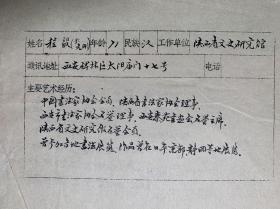 姓名 程毅(克刚)年龄71 民族汉 工作单位 陕西省文史研究馆
通讯地址 西安碑林区太阳庙门十七号 电话
主要艺术经历:
中国书法家协会会员、陕西省书法家协会理事、
西安市书法家协会名誉理事、西安秦友书画会名誉主席、
陕西省文史研究馆名誉员。
曾参加各地书法展览、作品曾在日本京都、静冈等地展览。